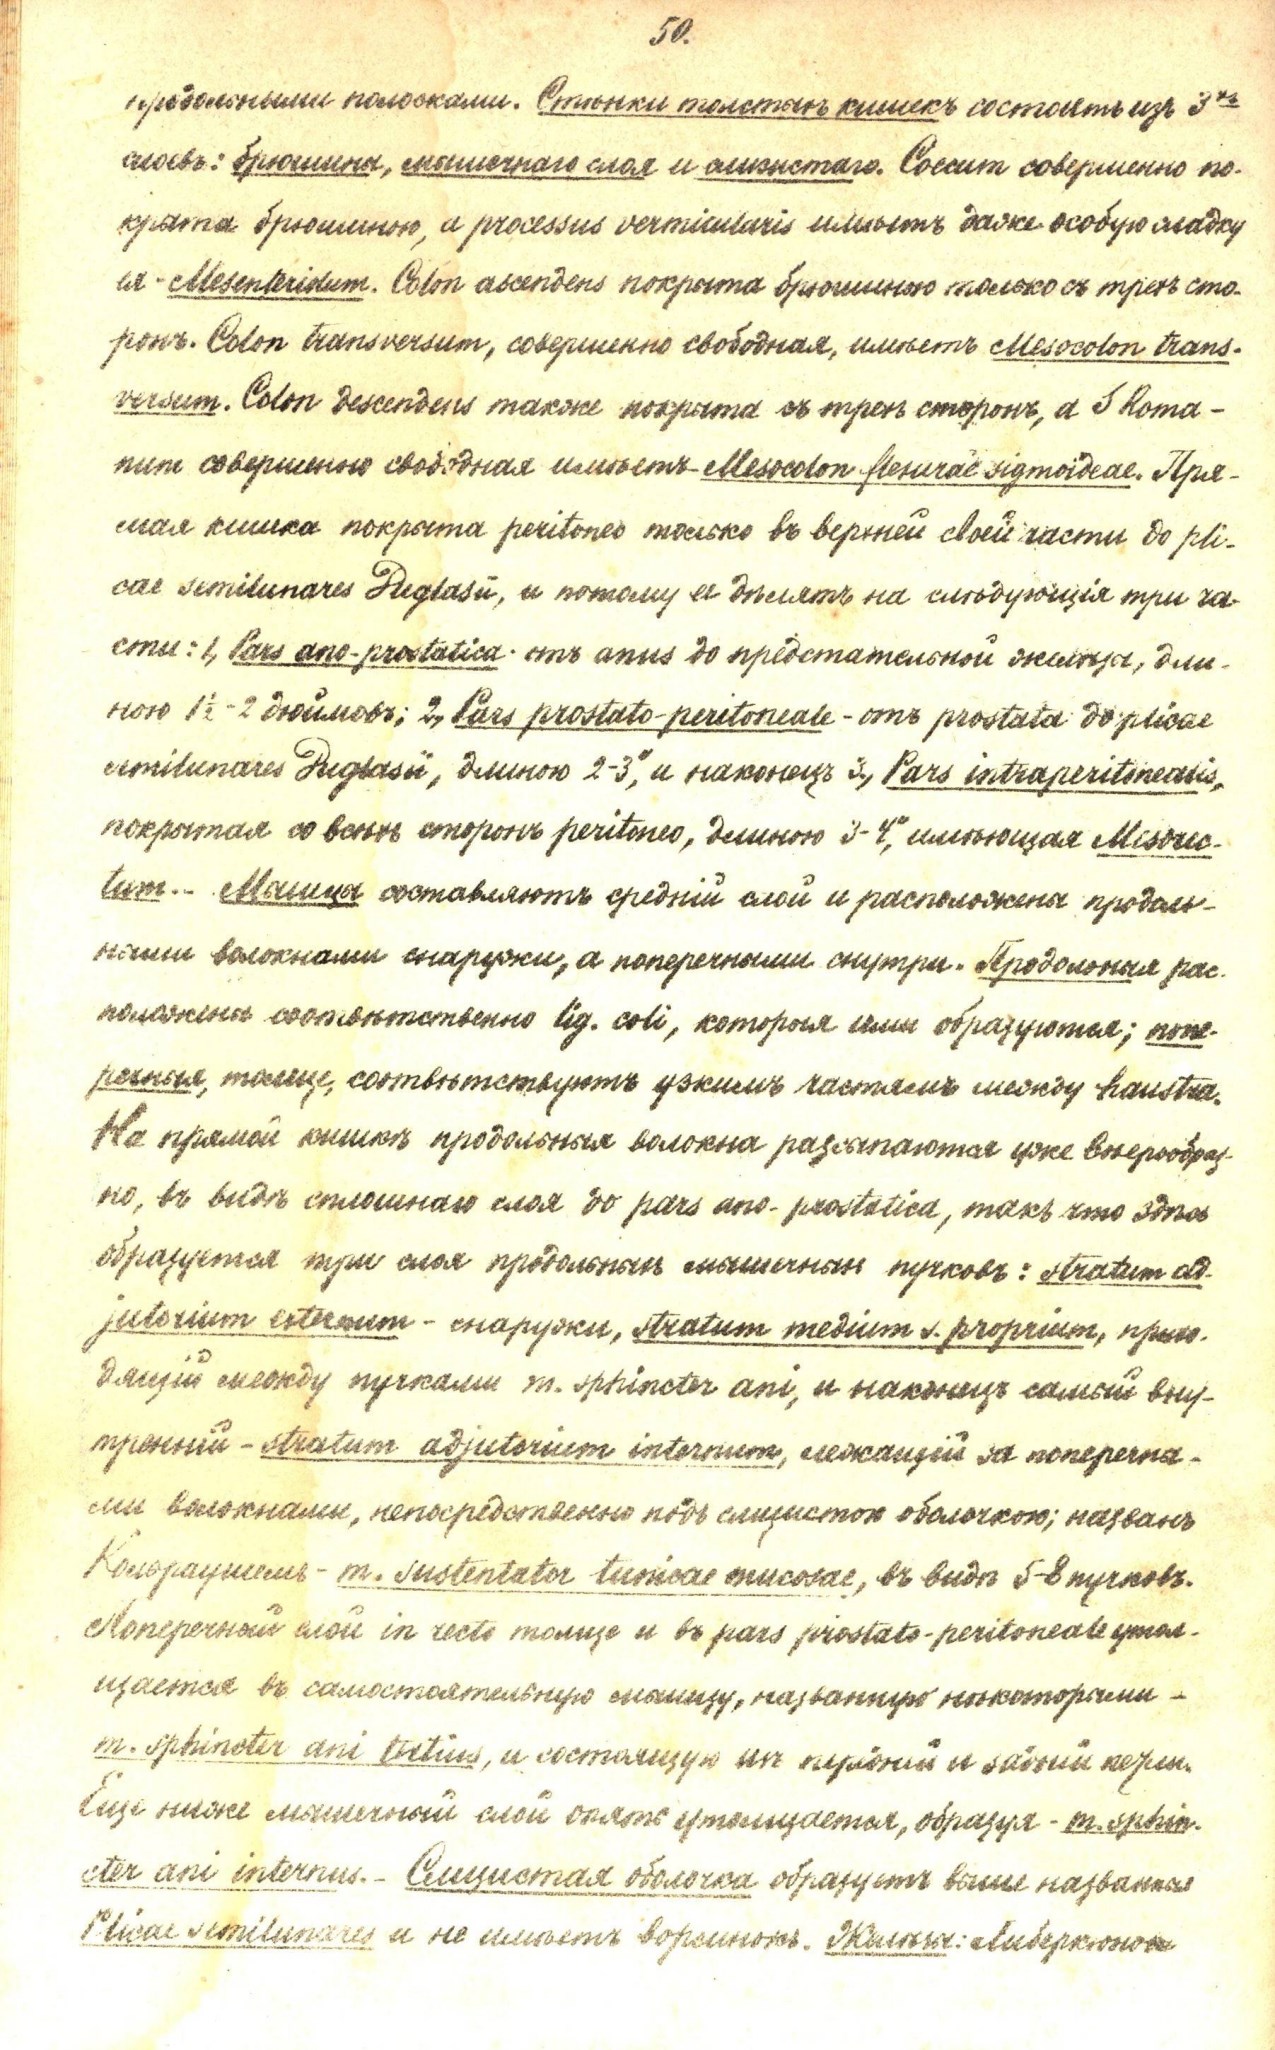 50.
продольными полосками. Стѣнки толстыхъ кишекъ состоятъ изъ 3хъ
слоевъ: брюшины, мышечнаго слоя и слизистаго. Coecum совершенно по-
крыта брюшиною, а processus vermicularis имѣетъ даже особую складку
ея - Mesenteridum. Colon ascendens покрыта брюшиною только съ трехъ сто-
ронъ. Colon transversum, совершенно свободная, имѣетъ Mesocolon trans-
versum. Colon descendens также покрыта съ трехъ сторонъ, а S Roma-
num совершенно свободная имѣетъ Mesocolon flexurae sigmoideae. Пря-
мая кишка покрыта peritoneo только въ верхней своей части до pli-
cae semilunares Duglasii, и потому ее дѣлятъ на слѣдующія три ча-
сти: 1, Pars ano-prostatica - отъ anus до предстательной железы, дли-
ною 1½-2 дюймовъ; 2, Pars prostato-peritoneale - отъ prostata до plicae
semilunares Duglasii, длиною 2-3", и наконецъ 3, Pars intraperitonealis,
покрытая со всѣхъ сторонъ peritoneo, длиною 3-4", имѣющая Mesorec-
tum. - Мышцы составляютъ средній слой и расположены продоль-
ными волокнами снаружи, а поперечными снутри. Продольныя рас-
положены соотвѣтственно lig. coli, которыя ими образуются; попе-
речныя, толще, соотвѣтствуютъ узкимъ частямъ между haustra.
На прямой кишкѣ продольныя волокна разсыпаются уже вѣерообраз-
но, въ видѣ сплошнаго слоя до pars ano-prostatica, такъ что здѣсь
образуется три слоя продольныхъ мышечныхъ пучковъ: stratum ad-
jutorium externum - снаружи, stratum medium s. proprium, прохо-
дящій между пучками m. sphincter ani, и наконецъ самый вну-
тренній - stratum adjutorium internum, лежащій за поперечны-
ми волокнами, непосредственно подъ слизистою оболочкою; названъ
Кольраушемъ - m. sustentator tunicae mucosae, въ видѣ 5-8 пучковъ.
Поперечный слой in recto толще и въ pars prostato-peritoneale утол-
щается въ самостоятельную мышцу, названную нѣкоторыми -
m. sphincter ani tertius, и состоящую изъ передней и задней петли.
Еще ниже мышечный слой опять утолщается, образуя - m. sphin-
cter ani internus. - Слизистая оболочка образуетъ выше названныя
Plicae semilunares и не имѣетъ ворсинокъ. Железы: Либеркюновы